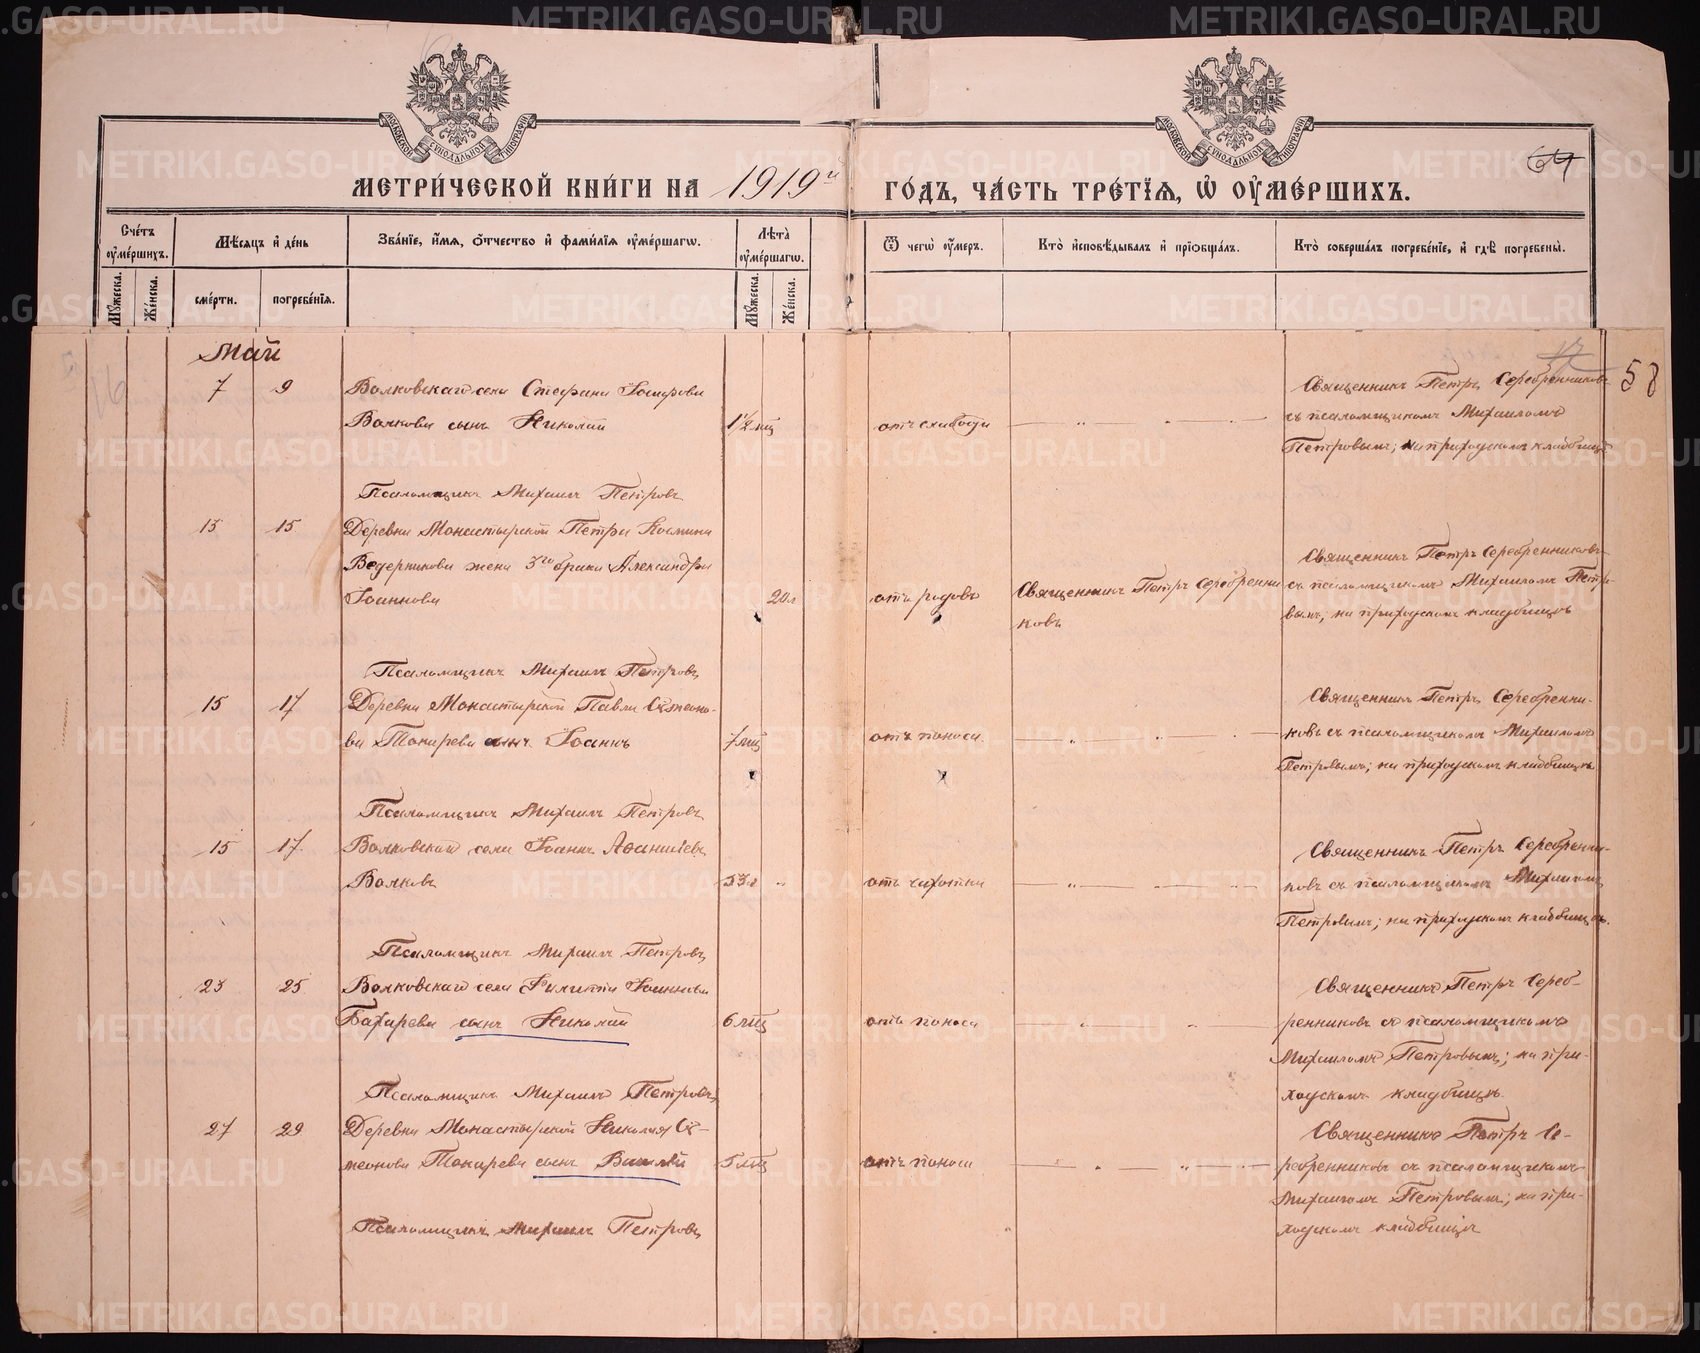 МОСКОВСКОЙ СѴНОДАЛЬНОЙ ТИПОГРАФІИ
МОСКОВСКОЙ СѴНОДАЛЬНОЙ ТИПОГРАФІИ
64
МЕТРИ́ЧЕСКОЙ КНИ́ГИ НА 1919й ГО́ДЪ, ЧА́СТЬ ТРЕ́ТІѦ, Ѡ҆ ОУ҆МЕ́РШИХЪ.
Сче́тъ оу҆ме́ршихъ.
Мѣ́сѧцъ и҆ де́нь
Зва́нїе, и҆́мѧ, о҆́тчество и҆ фами́лїѧ оу҆ме́ршагѡ.
Лѣта̀ оу҆ме́ршагѡ.
Ѿ чегѡ̀ оу҆́меръ.
Кто̀ и҆сповѣ́дывалъ и҆ прїѡбща́лъ.
Кто̀ соверша́лъ погребе́нїе, и҆ гдѣ̀ погребены̀.
Мꙋ́жеска.
Же́нска.
сме́рти.
погребе́нїѧ.
Мꙋ́жеска.
Же́нска.
58
Май
7 9 Волковскаго села Стефана Іосифова
Волкова сынъ Николай 1½ мц отъ слабости
Священникъ Петръ Серебренниковъ
съ псаломщикомъ Михаиломъ
Петровымъ; на приходскомъ кладбищѣ
Псаломщикъ Михаилъ Петровъ
13 15 Деревни Монастырской Петра Косьмина
Ведерникова жена 3го брака Александра
Іоаннова 24л отъ родовъ
Священникъ Петръ Серебренни
ковъ
Священникъ Петръ Серебренниковъ
съ псаломщикомъ Михаиломъ Петро-
вымъ, на приходскомъ кладбищѣ
Псаломщикъ Михаилъ Петровъ
15 17 Деревни Монастырской Павла Сѵмеоно-
ва Токарева сынъ Іоаннъ 7 мц отъ поноса
Священникъ Петръ Серебренни-
ковъ съ псаломщикомъ Михаиломъ
Петровымъ; на приходскомъ кладбищѣ
Псаломщикъ Михаилъ Петровъ
15 17 Волковскаго села Іоаннъ Аѳанасіевъ
Волковъ 53л отъ чахотки
Священникъ Петръ Серебренни-
ковъ съ псаломщикомъ Михаиломъ
Петровымъ; на приходскомъ кладбищѣ.
Псаломщикъ Михаилъ Петровъ
23 25 Волковскаго села Филиппа Іоаннова
Бахарева сынъ Николай 6 мц отъ поноса
Священникъ Петръ Сереб-
ренниковъ съ псаломщикомъ
Михаиломъ Петровымъ; на при-
ходскомъ кладбищѣ
Псаломщикъ Михаилъ Петровъ
27 29 Деревни Монастырской Николая Сѵ-
меонова Токарева сынъ Василій 5 мц отъ поноса
Священникъ Петръ Се-
ребренниковъ съ псаломщикомъ
Михаиломъ Петровымъ; на при-
ходскомъ кладбищѣ
Псаломщикъ Михаилъ Петровъ
METRIKI.GASO-URAL.RU